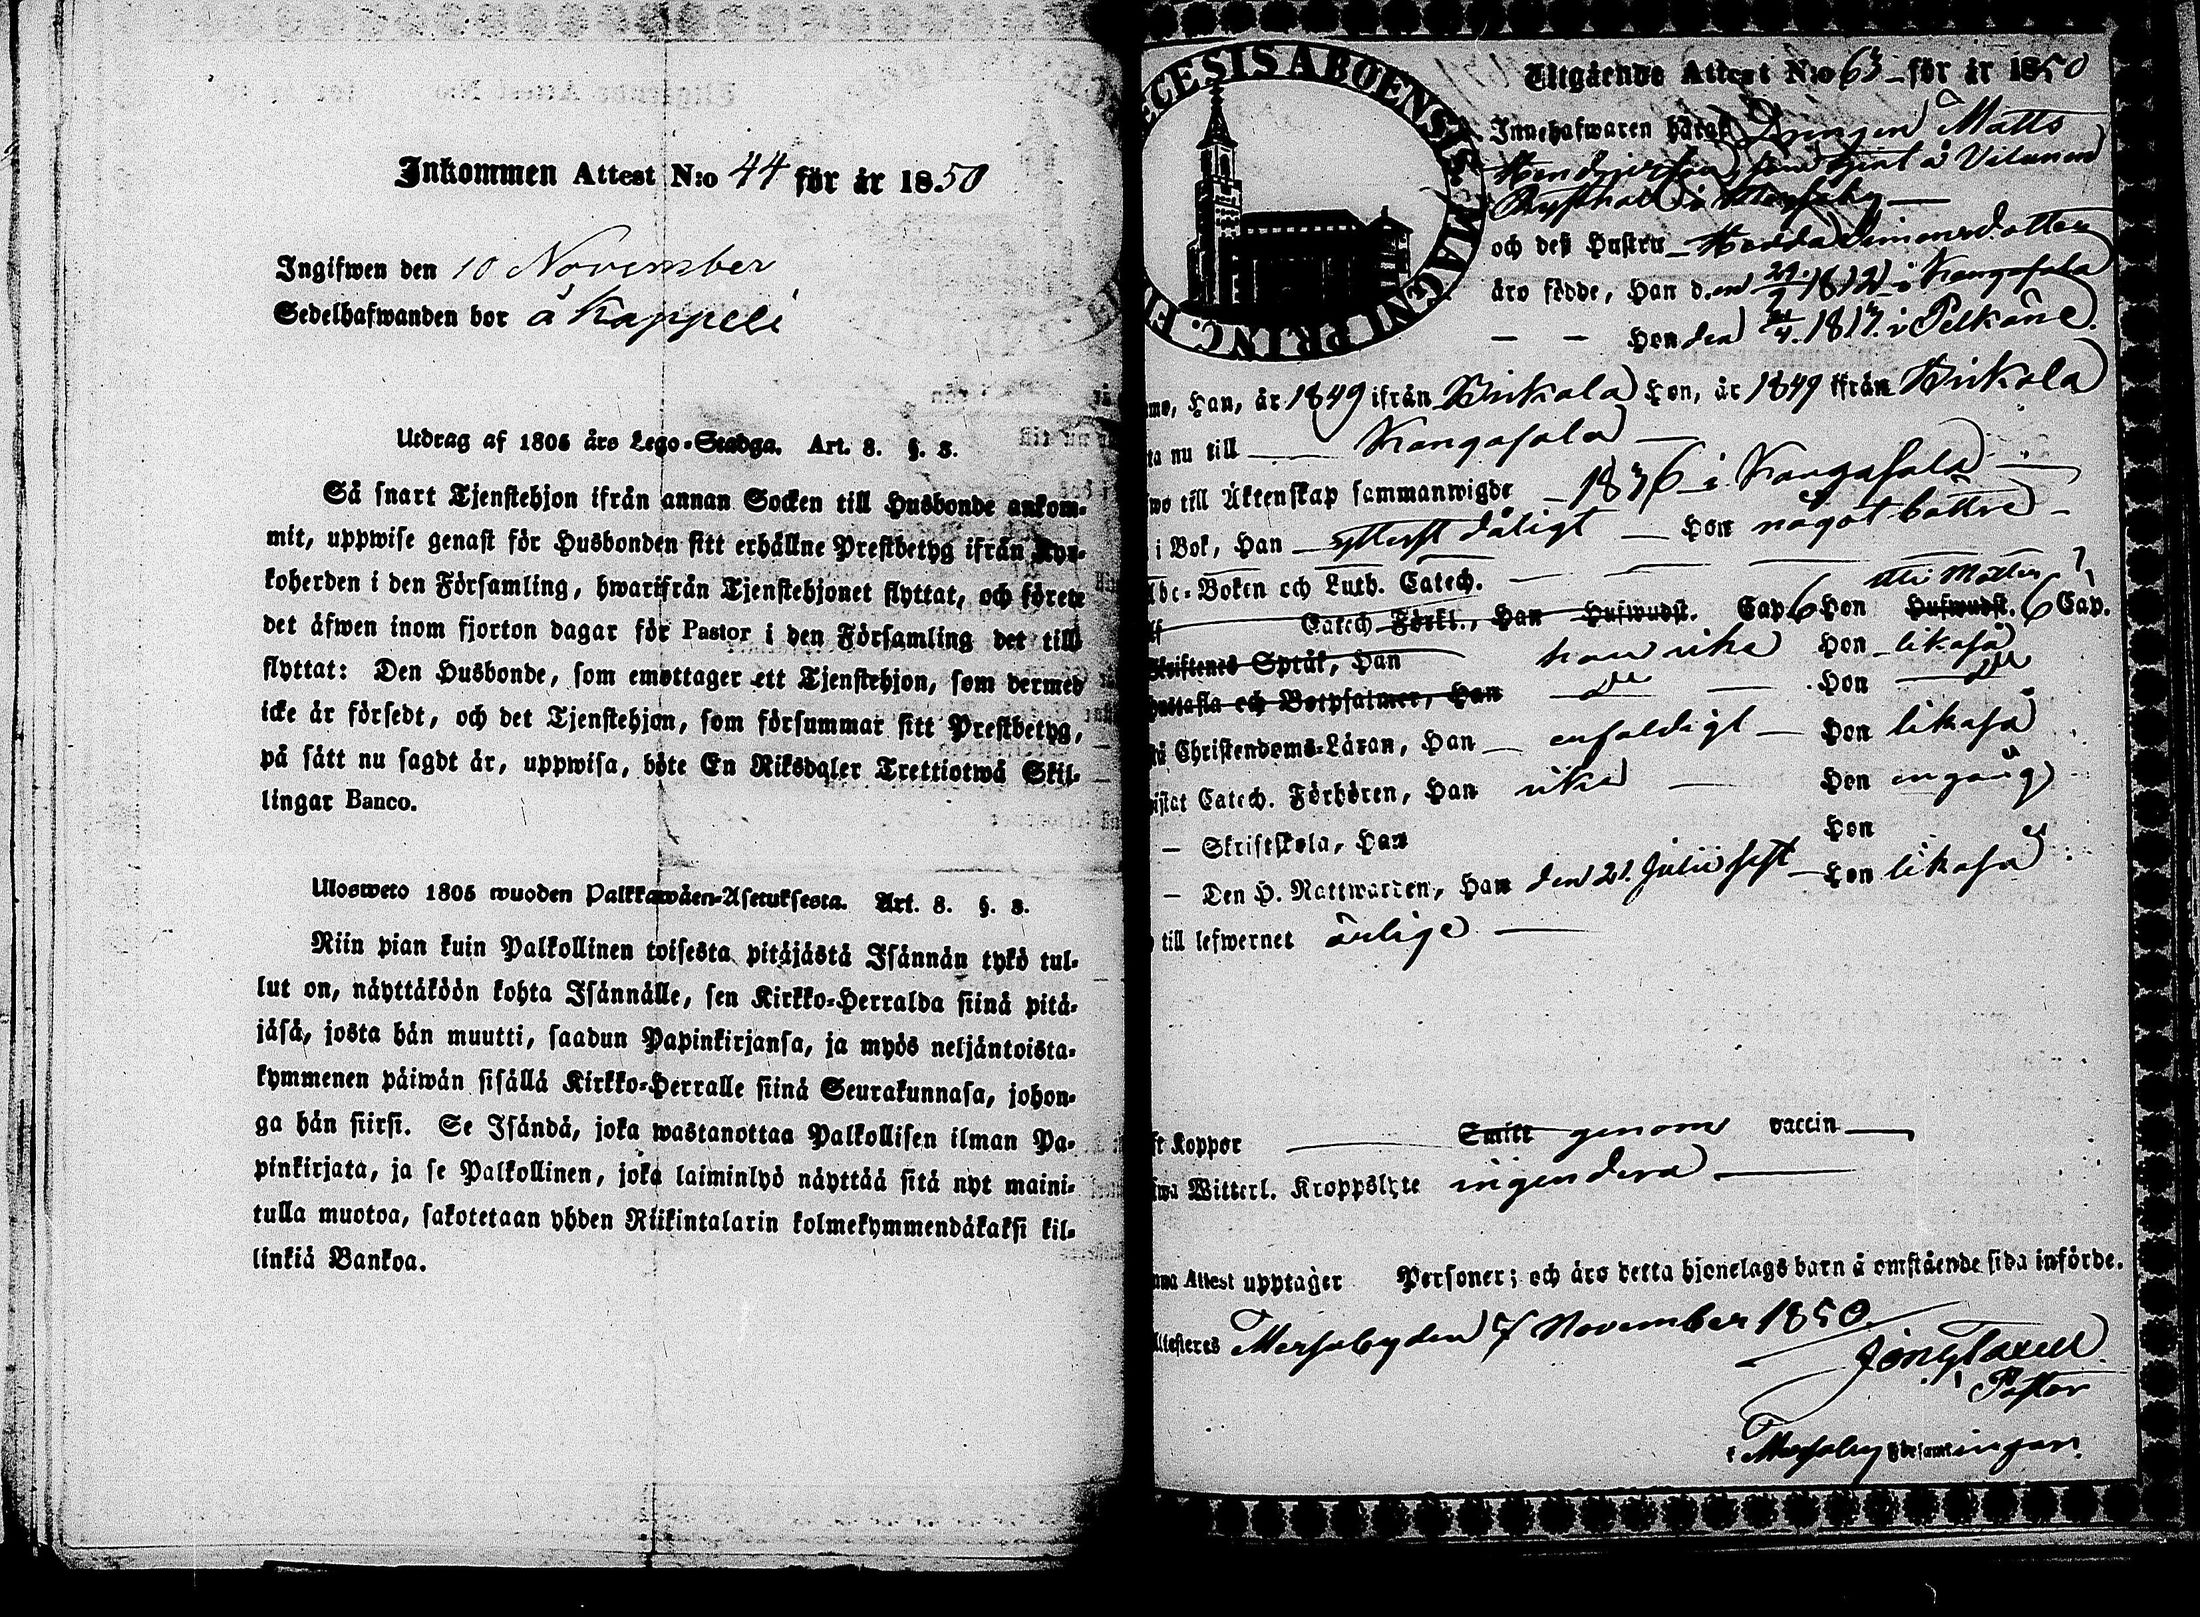 Inkommen Attest N:o 44 för år 1850
Ingifwen den 10 November
Sedelhafwanden bor å Kappeli
Utdrag af 1805 års Lego-Stadga. Art. 8. §. 3.
Så snart Tjenstehjon ifrån annan Socken till Husbonde ankom-
mit, uppwise genast för Husbonden sitt erhållne Prestbetyg ifrån Kyr-
koherden i den Församling, hwarifrån Tjenstehjonet flyttat, och förete
det äfwen inom fjorton dagar för Pastor i den Församling det till
flyttat: Den Husbonde, som emottager ett Tjenstehjon, som dermed
icke är försedt, och det Tjenstehjon, som försummar sitt Prestbetyg,
på sätt nu sagdt är, uppwisa, böte En Riksdaler Trettiotwå Skil-
lingar Banco.
Ulosweto 1805 wuoden Palkkawäen-Asetuksesta. Art. 8. §. 3.
Niin pian kuin Palkollinen toisesta pitäjästä Isännän tykö tul-
lut on, näyttäköön kohta Isännälle, sen Kirkko-Herralda siinä pitä-
jäsä, josta hän muutti, saadun Papinkirjansa, ja myös neljäntoista-
kymmenen päiwän sisällä Kirkko-Herralle siinä Seurakunnasa, johon-
ga hän siirsi. Se Isändä, joka wastanottaa Palkollisen ilman Pa-
pinkirjata, ja se Palkollinen, joka laiminlyö näyttää sitä nyt maini-
tulla muotoa, sakotetaan yhden Riikintalarin kolmekymmendäkaksi kil-
linkiä Bankoa.
ECESIS ABOENSIS. MAGNI PRINC.
Utgående Attest N:o 63 för år 1850
Innehafwaren häraf Drengen Matts
Hendricsson, som tjent å Vilunen
Rusthåll i Messuby
och dess Hustru Hedda Simonsdotter
äro födde, Han d.en 1812 i Kangasala
Hon den 1817 i Pelkäne.
Han, år 1849 ifrån Birkala Hon, år 1849 ifrån Birkala
ta nu till Kangasala
till Äktenskap sammanwigde 1836 i Kangasala
i Bok, Han ytterst dåligt Hon något bättre
Abc-Boken och Luth. Catech.
Catech Förkl., Han Hufwudst. Cap 6 Hon Hufwudst. 6 Cap.
Skriftenes Språk, Han kan icke Hon likaså
Hustafla och Botpsalmer, Han do Hon do
Christendoms-Läran, Han enfaldigt Hon likaså
Catech. Förhören, Han icke Hon en gång
– Skriftskola, Han Hon
– Den H. Nattwarden, Han den 21. Julii sist Hon likaså
till lefwernet ärlige
Koppor Smitt genom vaccin
Witterl. Kroppslyte ingendera
Attest upptager Personer; och äro detta hjonelags barn å omstående sida införde.
Attesteres Messuby den 7 November 1850.
Pastor
i Messuby Församlingar.